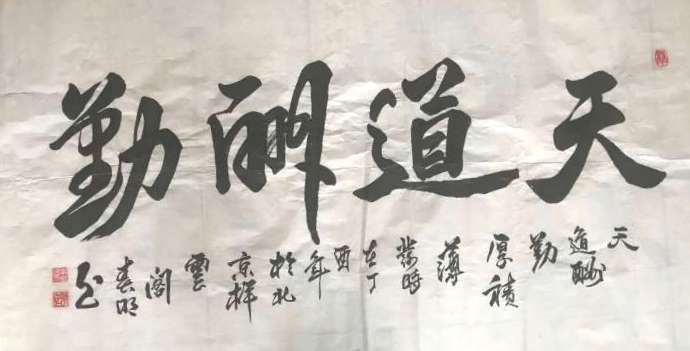 天道酬勤
天
道酬
勤
厚積
薄
發時
在丁
酉
年
於北
京祥
雲
閣
春明